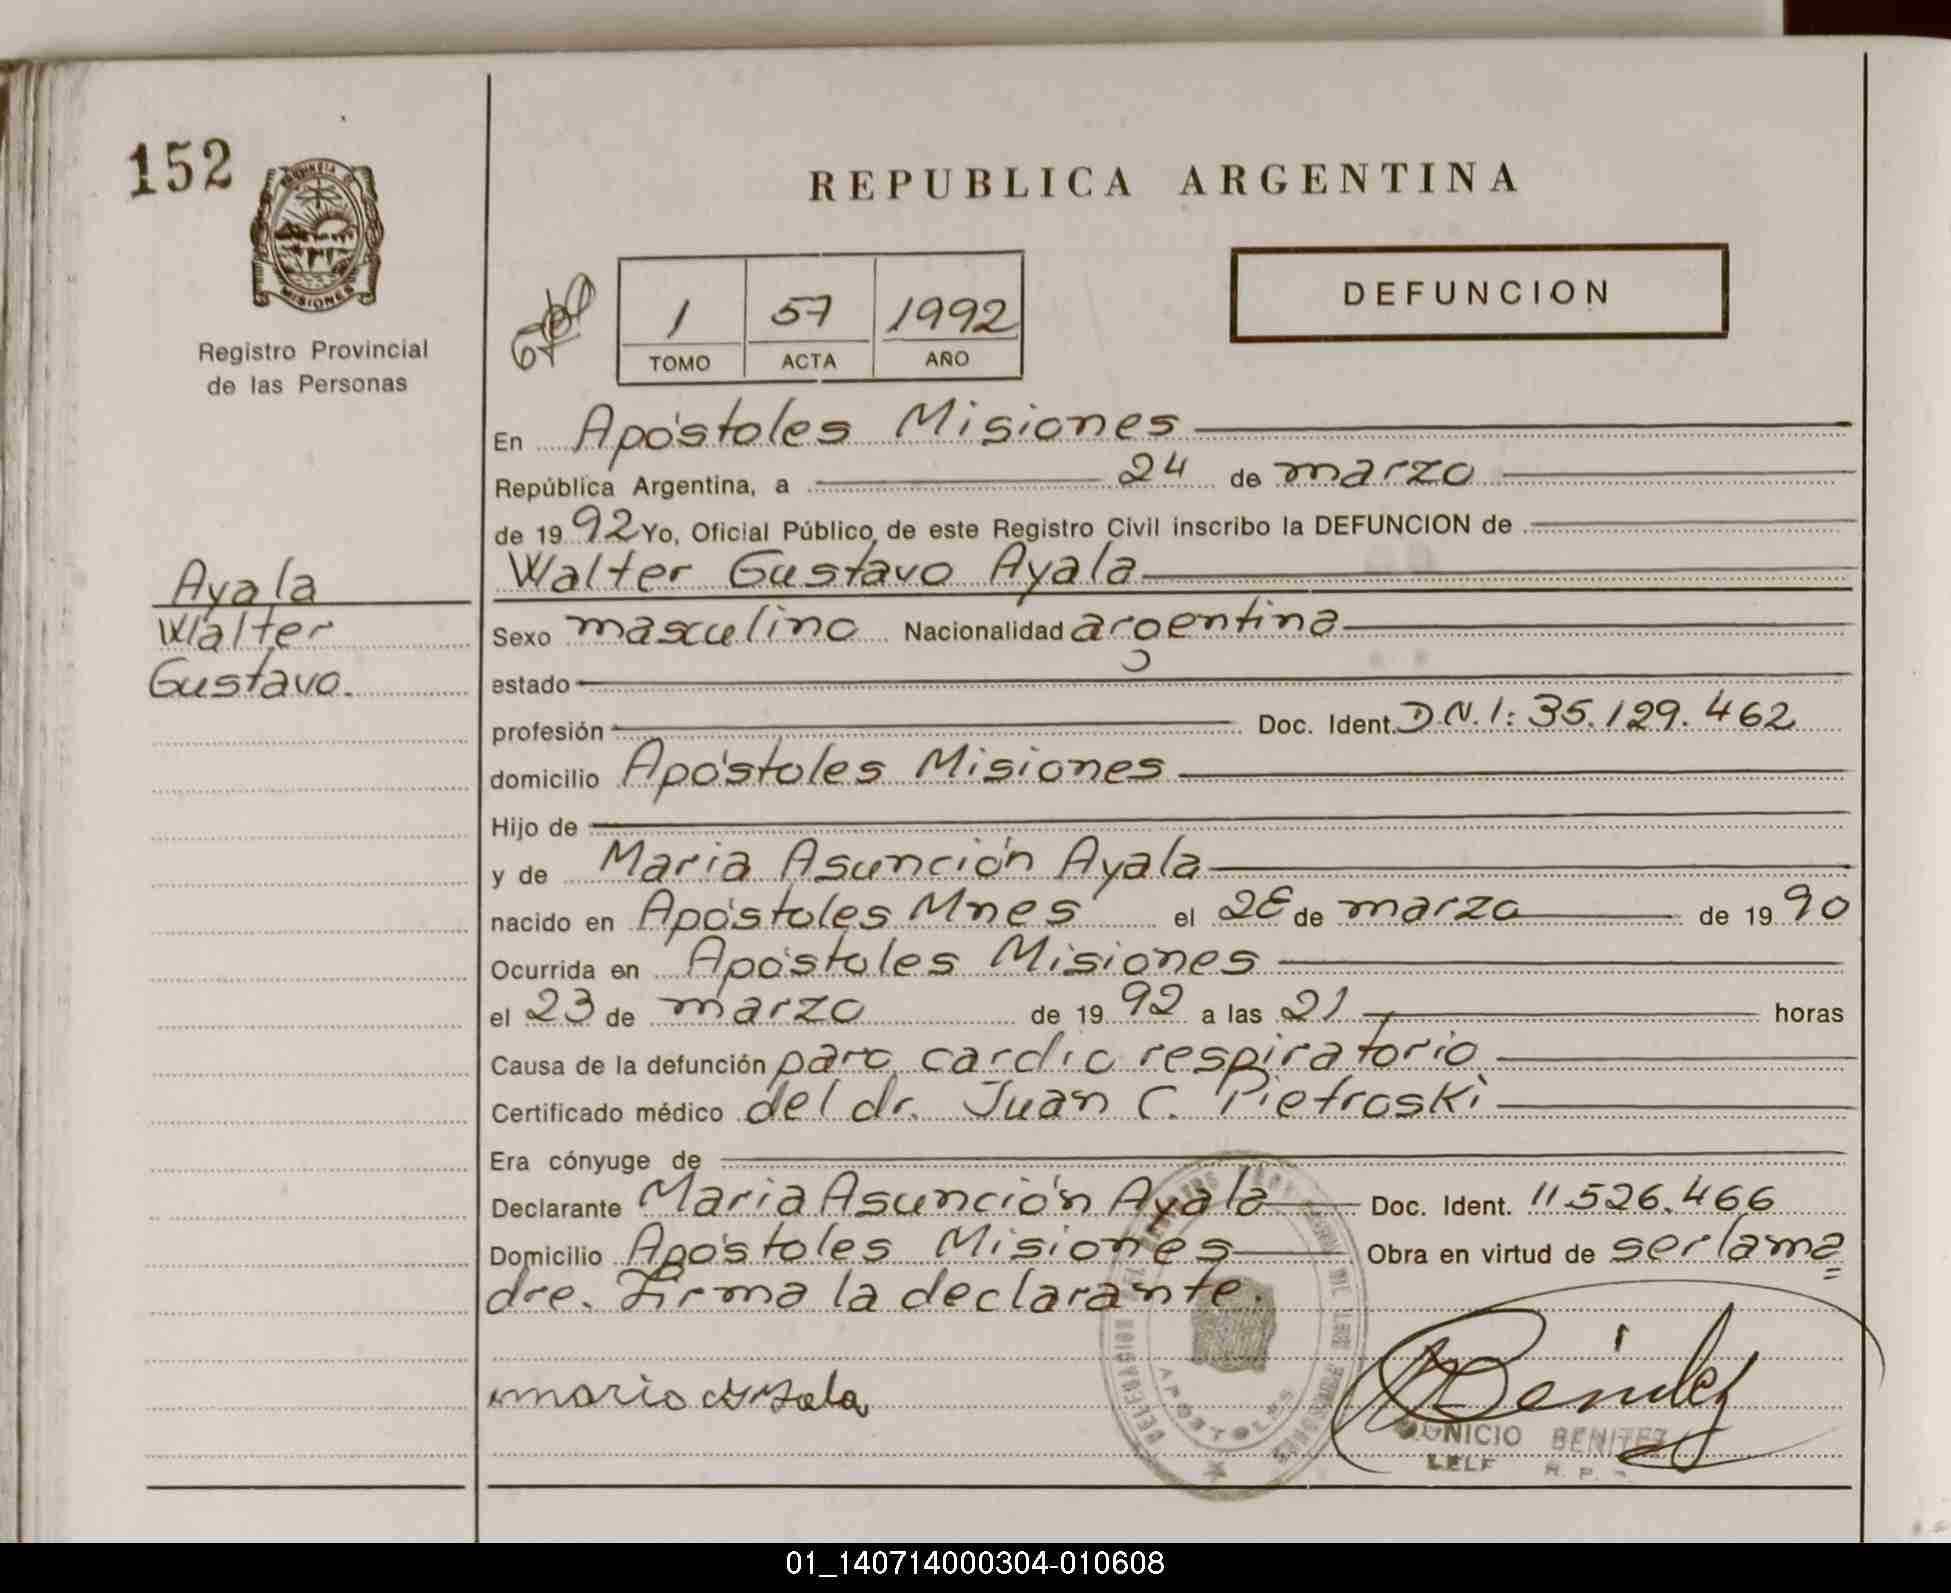 152
PROVINCIA DE
MISIONES
Registro Provincial
de las Personas
REPUBLICA ARGENTINA
DEFUNCION
1 57 1992
TOMO ACTA AÑO
En Apóstoles Misiones
República Argentina, a 24 de marzo
de 1992 Yo, Oficial Público de este Registro Civil inscribo la DEFUNCION de
Walter Gustavo Ayala
Ayala
Walter
Gustavo.
Sexo masculino Nacionalidad argentina
estado
profesión Doc. Ident. D.N.I: 35.129.462
domicilio Apóstoles Misiones
Hijo de
y de Maria Asunción Ayala
nacido en Apóstoles Mnes el de marzo de 1990
Ocurrida en Apóstoles Misiones
el 23 de marzo de 1992 a las 21 horas
Causa de la defunción paro cardio respiratorio
Certificado médico del dr. Juan C. Pietroski
Era cónyuge de
Declarante Maria Asunción Ayala Doc. Ident. 11526.466
Domicilio Apóstoles Misiones Obra en virtud de ser la ma=
dre. Firma la declarante.
APOSTOLES
BENITEZ
01_140714000304-010608